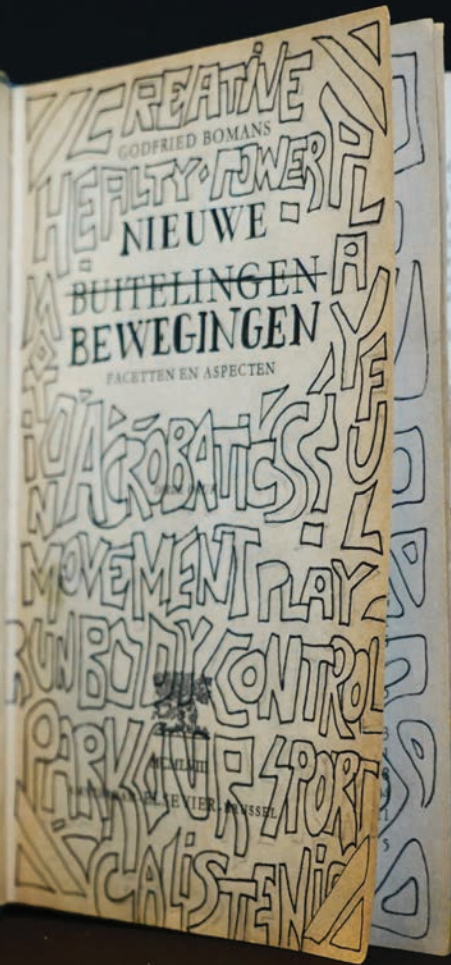 CREATIVE
GODFRIED BOMANS
HEALTY · POWER
PLAYFUL
NIEUWE
BUITELINGEN
BEWEGINGEN
FACETTEN EN ASPECTEN
ACROBATICS
MOVEMENT PLAY
RUN BODY CONTROL
PARKOUR SPORT
MCMLVIII
ELSEVIER BRUSSEL
CALISTENIC